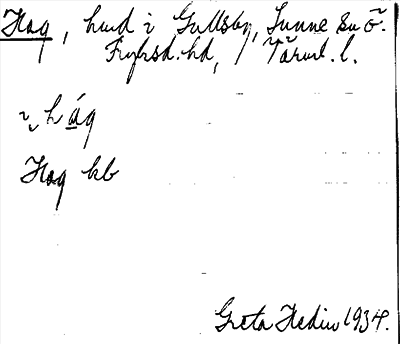 Hag, hmd i Gullsby, Sunne sn ö.
Fryksd. hd, Värml. l.
i, h ág
Hag kb
Greta Hedin 1934.